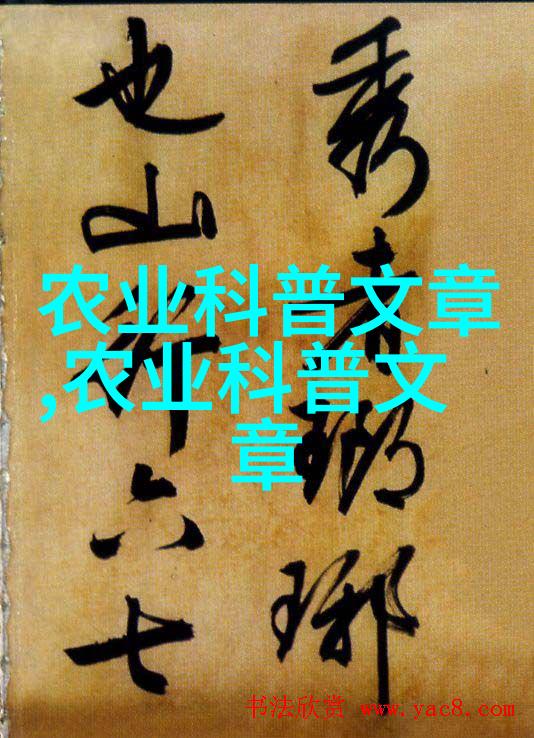 秀者瑯琊
也山行六七
农业科普文章
,农业科普文
章
书法欣赏 www.yac8.com